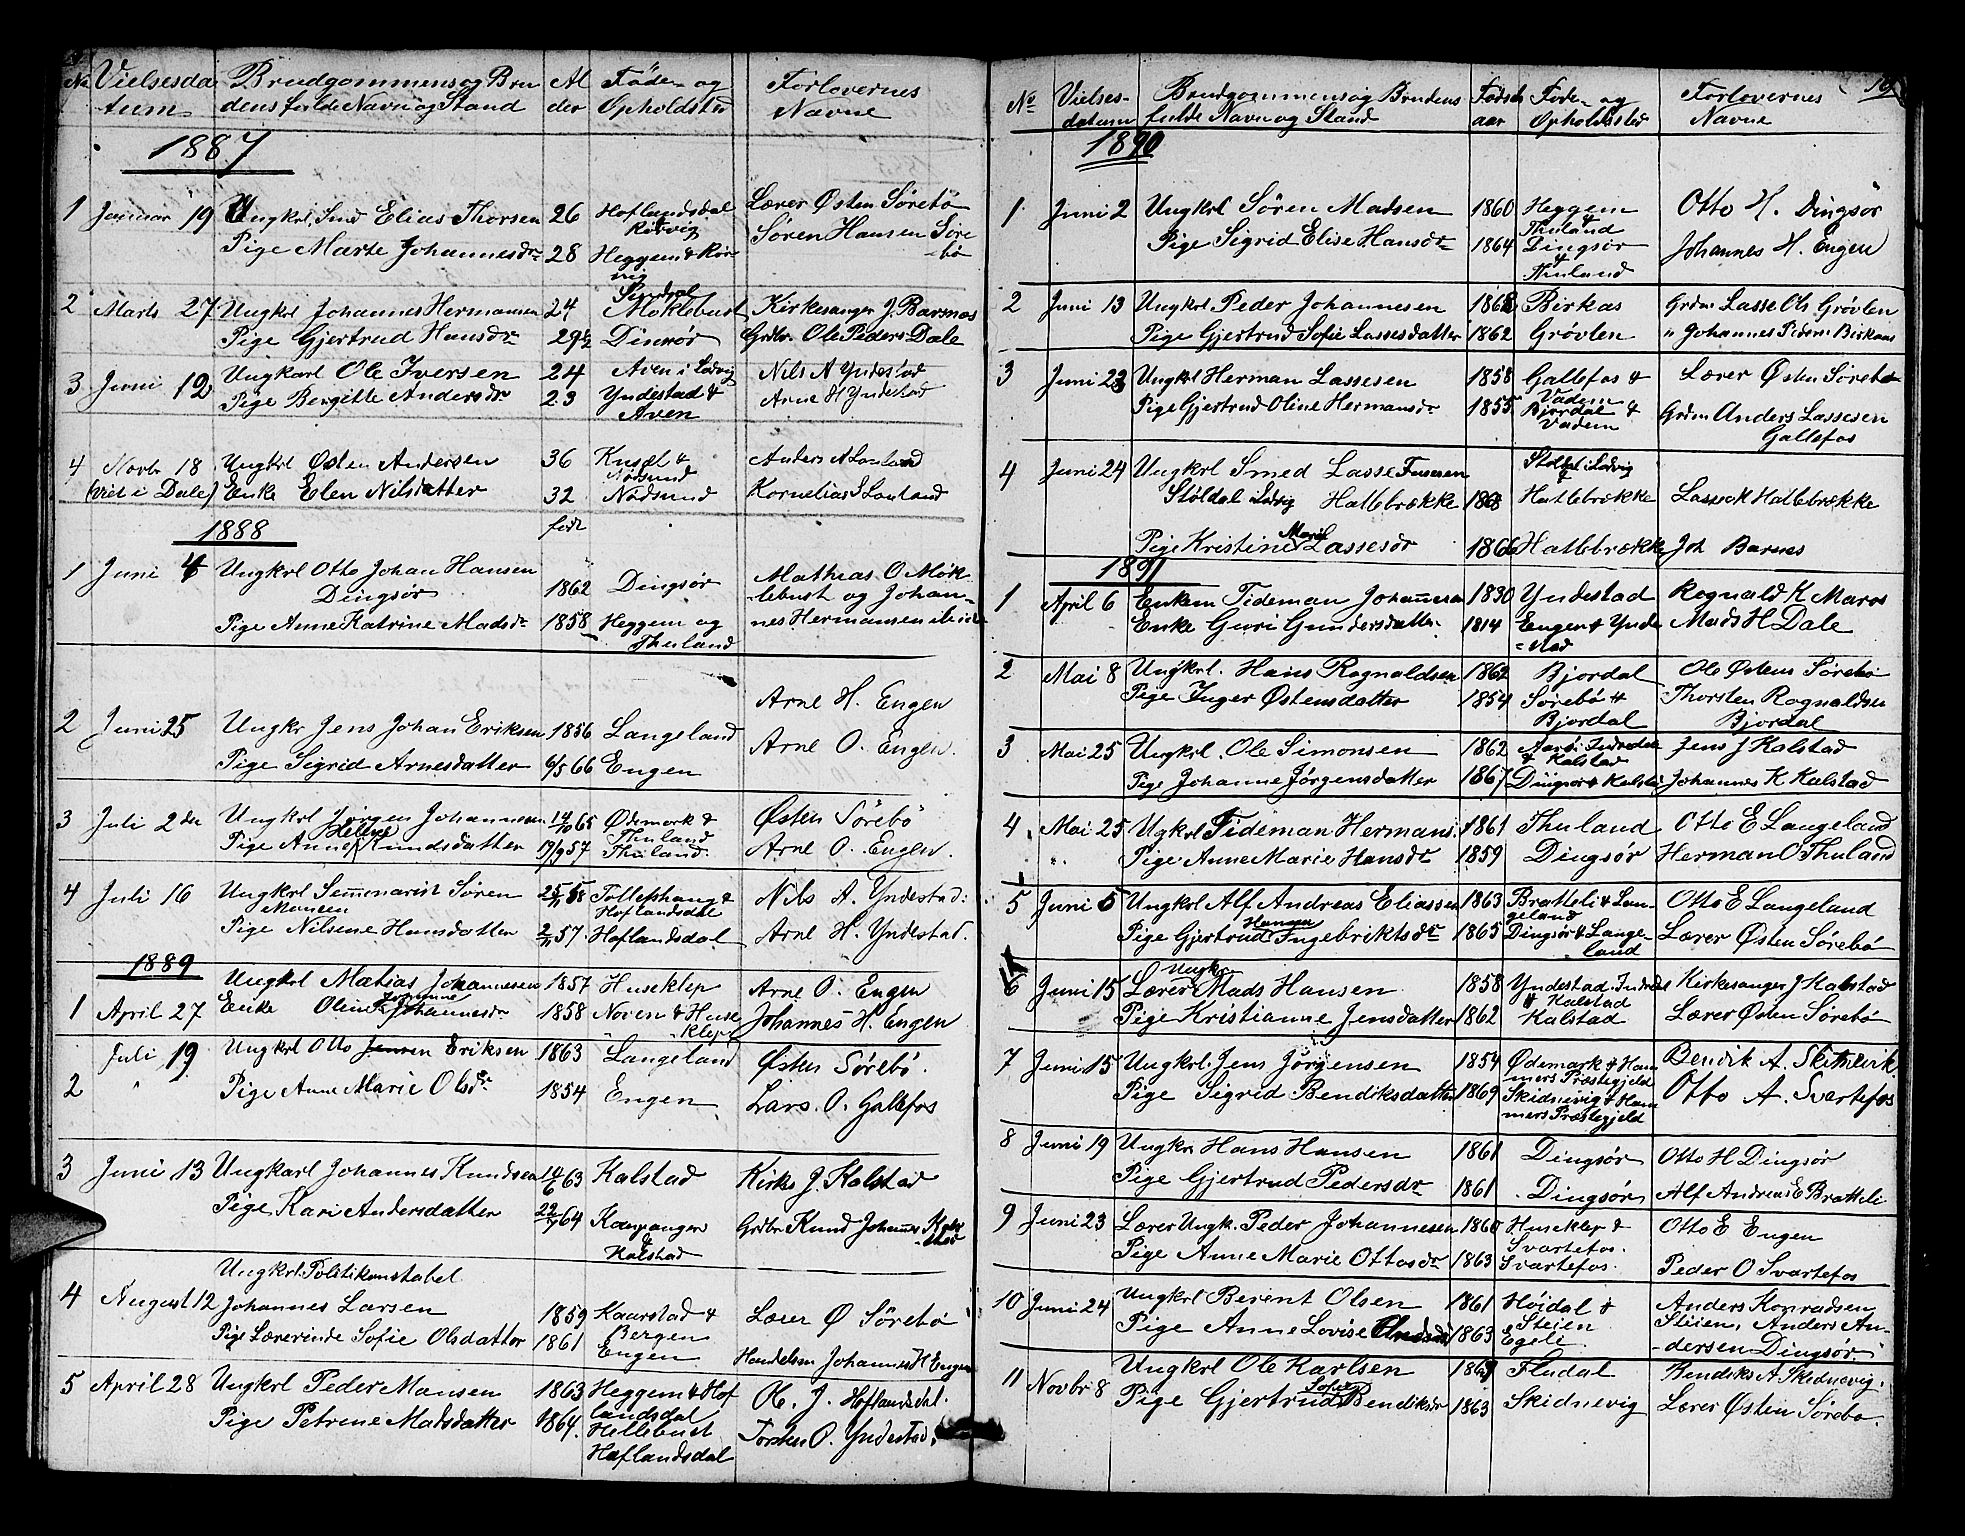 No Vielsesda Brudgommens og Bru Al Föde- og Forlovernes
tum dens fulde Navn og Stand der Opholdsted Navne
1887
1 Januar 19 Ungkrl. Smed Elias Thorsen 26 Hoflandsdal Lærer Østen Sörebö
Sören Hansen Söre
Pige Marte Johannesdr 28 Heggem &
bö
2 Marts 27 Ungkrl Johannes Hermansen 24 Möklebust Kirkesanger J. Barsnæs
Pige Gjertrud Hansdr 29½ Grdbr. Ole Peders Dale
3 Juni 12 Ungkarl Ole Iversen 24 Aven i Ladvig Nils A Yndestad
Pige Bergitte Andersdr 23 Yndestad & Arne H Yndestad
Aven
4 Novbr 18 Ungkrl Østen Andersen 36 & Anders
(viet i Dale) Enke Elen Nilsdatter 32 Nodsund Kornelius
1888 födt
1 Juni 4 Ungkrl Otto Johan Hansen Mathias O Mök
Dingsör 1862 Dingsör lebust og Johan-
Pige Anne Katrine Madsdr 1858 Heggem og nes Hermansen
Thuland
2 Juni 25 Ungkr Jens Johan Eriksen 1856 Langeland Arne H. Engen
Pige Sigrid Arnesdatter 6/5 66 Engen Arne O. Engen.
3 Juli 2den Ungkrl Jörgen Johannesen 14/10 65 Ødemark & Østen Sörebö
Helene Thuland
Pige Anne Knudsdatter 19/9 57 Thuland. Arne O. Engen.
4 Juli 16 Ungkrl Seminarist Sören 25/ 58 Tollefshaug & Nils A. Yndestad:
Monsen Hoflandsdal
Pige Nilsine Hansdatter 2/ 57. Hoflandsdal Arne H. Yndestad.
1889
1 April 27 Ungkrl Matias Johannesen 1857 Huseklep Arne O. Engen
Enke Oline Johannesdr 1858 Noven & Huse Johannes H. Engen
klep
2 Juli 19 Ungkrl Otto Jensen Eriksen 1863 Langeland Østen Sörebö.
Pige Anne Marie Olsdr 1854 Engen Lars. O. Gallefos
3 Juni 13 Ungkarl Johannes Knudsen 14/6 63 Kalstad Kirks J. Kalstad
Pige Kari Andersdatter 22/ 64 Kaupanger Grdbr Knud Johannes
& Kalstad
Ungkrl. Politikonstabel
4 August 12 Johannes Larsen 1859 Kaarstad & Lærer Ø Sörebö
Bergen
Pige Lærerinde Sofie Olsdatter 1861 Engen Handelsm Johannes H Engen
5 April 28 Ungkrl Peder Monsen 1863 Heggem & Hof Ol. J. Hoflandsdal.
landsdal
Pige Petrine Madsdatter 1864. Hellebust Torsten O. Yndestad.
Hoflandsdal
19
No Vielses- Brudgommens og Brudens Födsels Föde- og Forlovernes
datum fulde Navn og Stand aar Opholdssted Navne
1890
1 Juni 2 Ungkrl Sören Madsen 1860 Heggem Otto H. Dingsör
& Thuland
Pige Sigrid Elise Hansdr 1864 Dingsör Johannes H. Engen
& Thuland
2 Juni 13 Ungkrl. Peder Johannesen 1868 Birkas Grdm Lasse Ols Grövlen
Pige Gjertrud Sofie Lassesdatter 1862 Grövlen " Johannes Peders Birkaas
3 Juni 23 Ungkrl Herman Lassesen 1858 Gallefos & Lærer Østen Sörebö
Vadem
Pige Gjertrud Oline Hermansdr 1855 Bjordal & Grdm Anders Lassesen
Vadem Gallefos
4 Juni 24 Ungkrl Smed Lasse i Ladvig
Stöldal i Ladvig Hatlebrække 1868 Hatlebrække Hatlebrække
Marie
Pige Kristine Lassesdr 1866 Hatlebrække Joh Barnes
1891
1 April 6 Enkem Tideman Johannesen 1830 Yndestad Rognald K Maros
Enke Guri Gundersdatter. 1814 Engen & Ynde Mads H Dale
stad
2 Mai 8 Ungkrl. Hans Rognaldsen 1862 Bjordal Ole Østens Sörebö
Pige Inger Østensdatter 1854 Sörebö & Thorsten Rognaldsen
Bjordal Bjordal
3 Mai 25 Ungkrl. Ole Simonsen 1862 Jens J Kalstad
& Kalstad
Pige Johanne Jörgensdatter 1867 Dingsör & Kalstad Johannes K Kalstad
4 Mai 25 Ugkrl Tideman Hermans. 1861 Thuland Otto E Langeland
" Pige Anne Marie Hansdr 1859 Dingsör Herman O Thuland
5 Juni 5 Ungkrl Alf Andreas Eliassen 1863 Bratteli & Lan- Otto E Langeland
geland
Hansine
Pige Gjertrud Ingebriktsdr 1865 Dingsör & Lange- Lærer Østen Sörebö
land
Ungkr
6 Juni 15 Lærer Mads Hansen 1858 Yndestad Kirkesanger J Kalstad
& Kalstad
Pige Kristianne Jensdatter 1862 Kalstad Lærer Østen Sörebö
7 Juni 15 Ungkrl. Jens Jörgensen 1854 Ødemark & Ham Bendik A.
mers Præstegjeld
Pige Sigrid Bendiksdatter 1869 Skidnevig & Ham Otto A. Svartefos
mers Præstegjeld
8 Juni 19 Ungkr Hans Hansen 1861 Dingsör Otto H Dingsör
Pige Gjertrud Pedersdr 1861 Dingsör Alf Andreas E Bratteli
9 Juni 23 Lærer Ungk. Peder Johannesen 1860 Huseklep & Otto E Engen
Svartefos.
Pige Anne Marie Ottosdr 1863 Svartefos. Peder O Svartefos
10 Juni 24 Ungkrl Berent Olsen 1861 Höidal & Anders Konradsen
Steien Steien, Anders An-
Pige Anne Lovise 1863 Egeli dersen Dingsör.
11 Novbr 8 Ungkrl Ole Karlsen Flodal Bendiks A Skidnevig.
Sofie
Pige Gjertrud Bendiksdr 1863 Skidnevig Lærer Østen Sörebö.